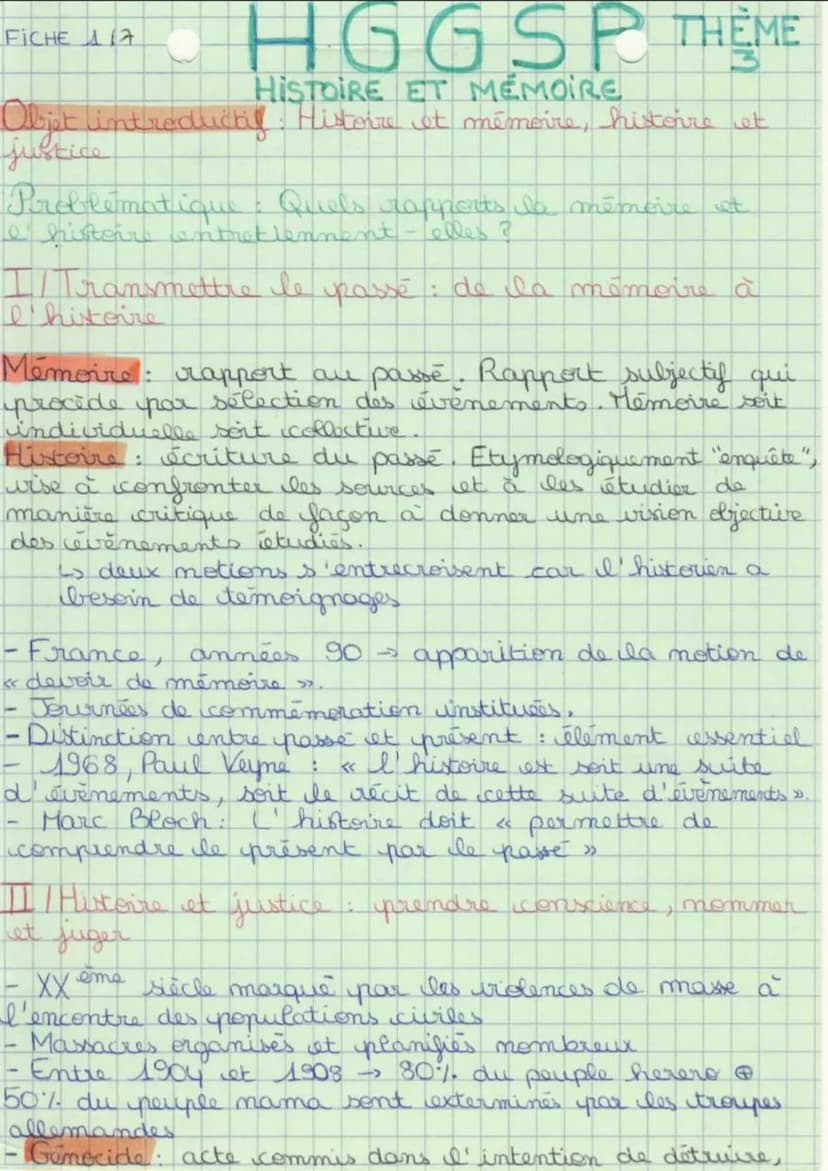 FICHE 1/7
HGGSP THÈME 3
HISTOIRE ET MÉMOIRE
Objet introductif : Histoire et mémoire, histoire et
justice
Problématique : Quels rapports la mémoire et
l'histoire entretiennent-elles ?
I / Transmettre le passé : de la mémoire à
l'histoire
Mémoire : rapport au passé. Rapport subjectif qui
procède par sélection des évènements. Mémoire soit
individuelle soit collective.
Histoire : écriture du passé. Etymologiquement "enquête",
vise à confronter les sources et à les étudier de
manière critique de façon à donner une vision objective
des évènements étudiés.
↳ deux notions s'entrecroisent car l'historien a
besoin de témoignages
- France, années 90 → apparition de la notion de
« devoir de mémoire ».
- Journées de commémoration instituées.
- Distinction entre passé et présent : élément essentiel
- 1968, Paul Veyne : « l'histoire est soit une suite
d'évènements, soit le récit de cette suite d'évènements ».
- Marc Bloch : L'histoire doit « permettre de
comprendre le présent par le passé »
II / Histoire et justice : prendre conscience, nommer
et juger
- XXème siècle marqué par les violences de masse à
l'encontre des populations civiles
- Massacres organisés et planifiés nombreux
- Entre 1904 et 1908 → 80% du peuple herero ⊕
50% du peuple nama sont exterminés par les troupes
allemandes
- Génocide : acte commis dans l'intention de détruire,